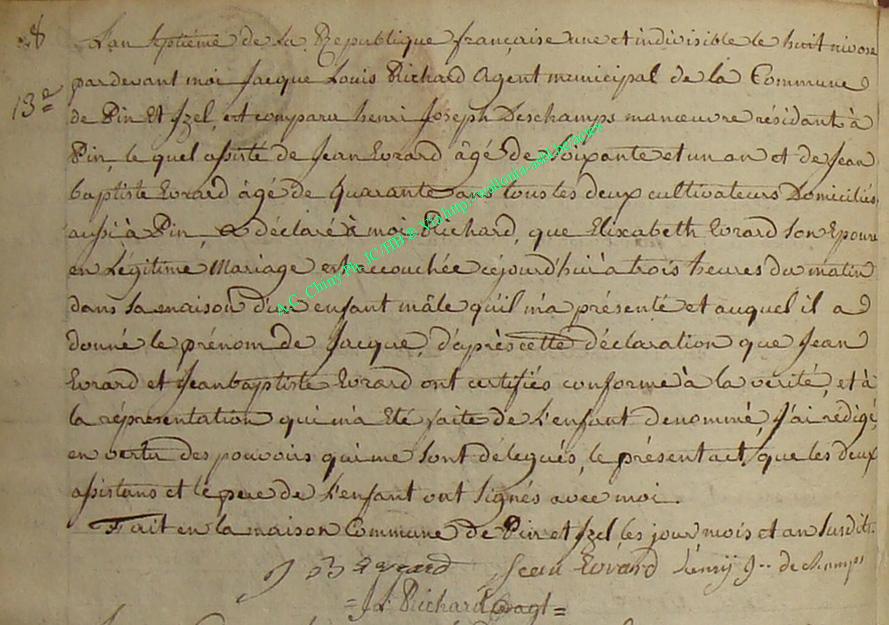 28
L'an septiéme de la Republique française une et indivisible le huit nivose
13e
pardevant moi Jacque Louis Richard Agent municipal de la Commune
de Pin Et Izel, est comparu henri Joseph Deschamps manœuvre résidant à
Pin, le quel assisté de Jean Evrard âgé de soixante et un an et de Jean
baptiste Evrard âgé de quarante ans tous les deux cultivateurs Domiciliés
aussi à Pin, a déclaré à moi Richard, que Elizabeth Evrard son Epouse
en Légitime Mariage est accouchée cejourd'hui à trois heures du matin
dans sa maison d'un enfant mâle qu'il m'a présenté et auquel il a
donné le prénom de Jacque, d'après cette déclaration que Jean
Evrard et Jean baptiste Evrard ont certifiés conforme à la vérité, et à
la réprésentation qui m'a été faite de l'enfant denommé, J'ai rédigé,
en vertu des pouvoirs qui me sont délegués, le présent act, que les deux
assistans et le pere de l'enfant ont signés avec moi.
Fait en la maison Commune de Pin et Izel les jour mois et an susdits.
J B Evrard Jean Evrard henrÿ J.. de Champs
= J L Richard agt =
A.C. Chiny Pin JC HB & AD http://wallonia-and-beyond